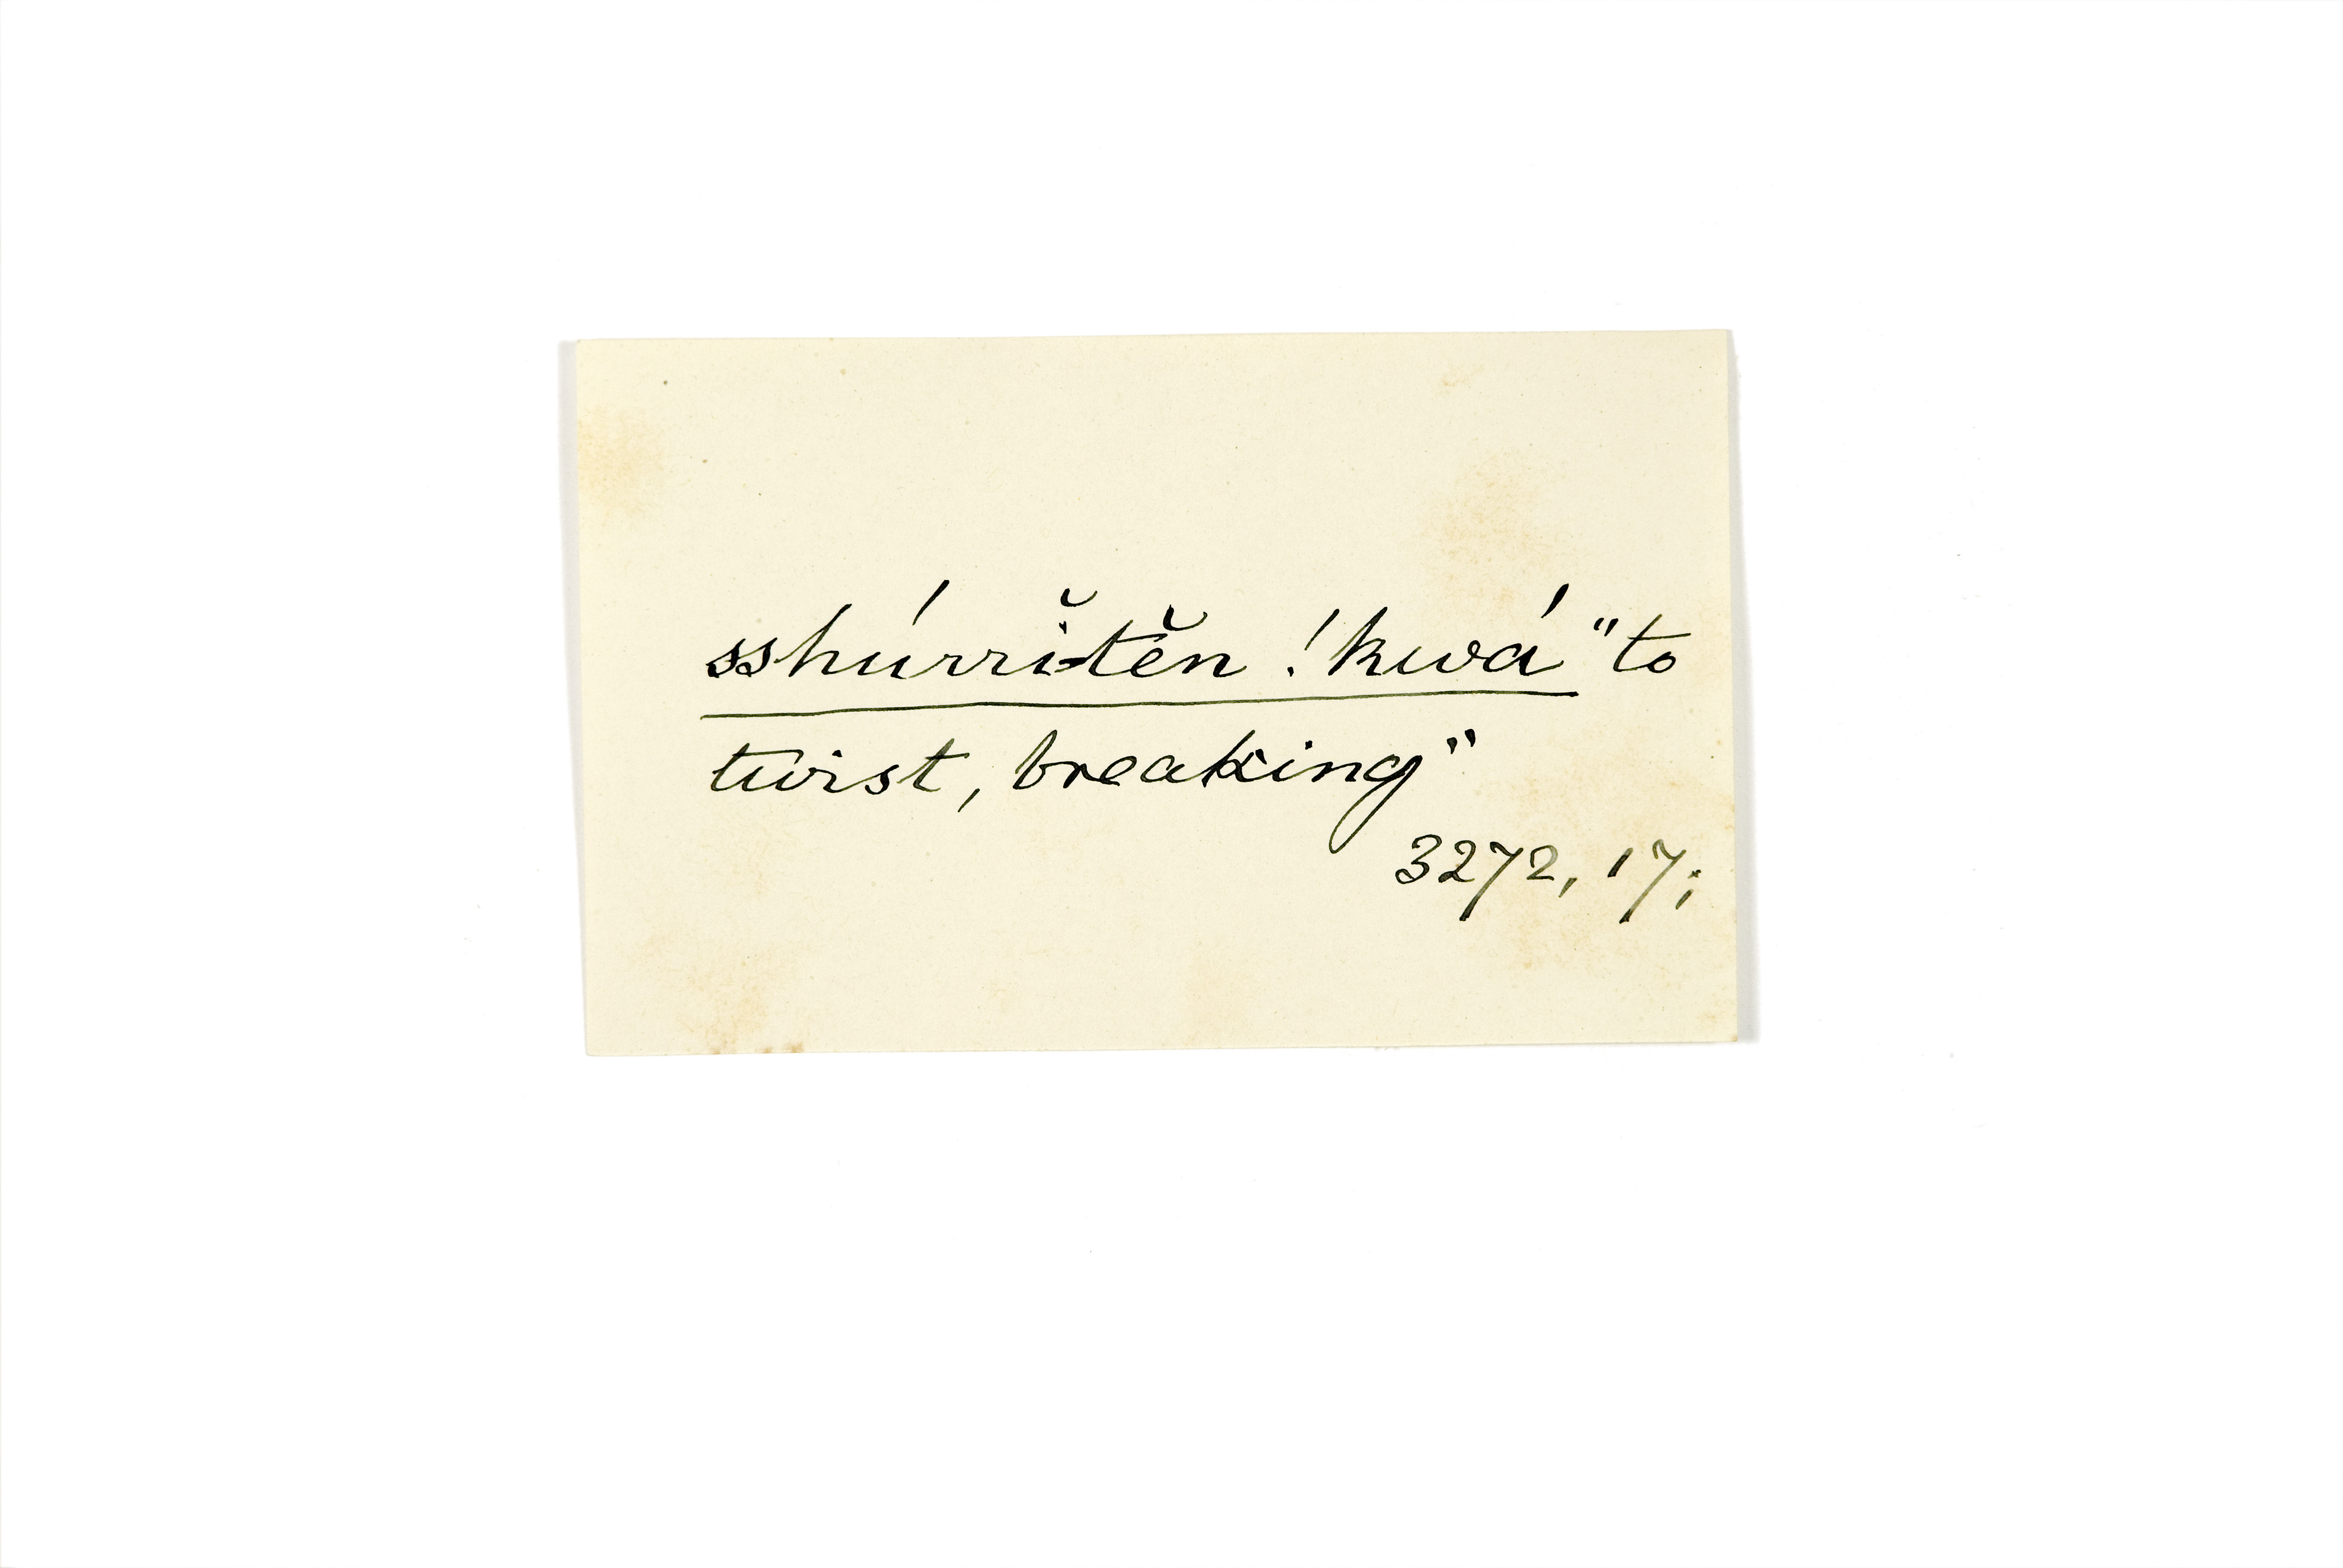 sshúrrĭtĕn !kwá "to
twist, breaking"
3272, 17;